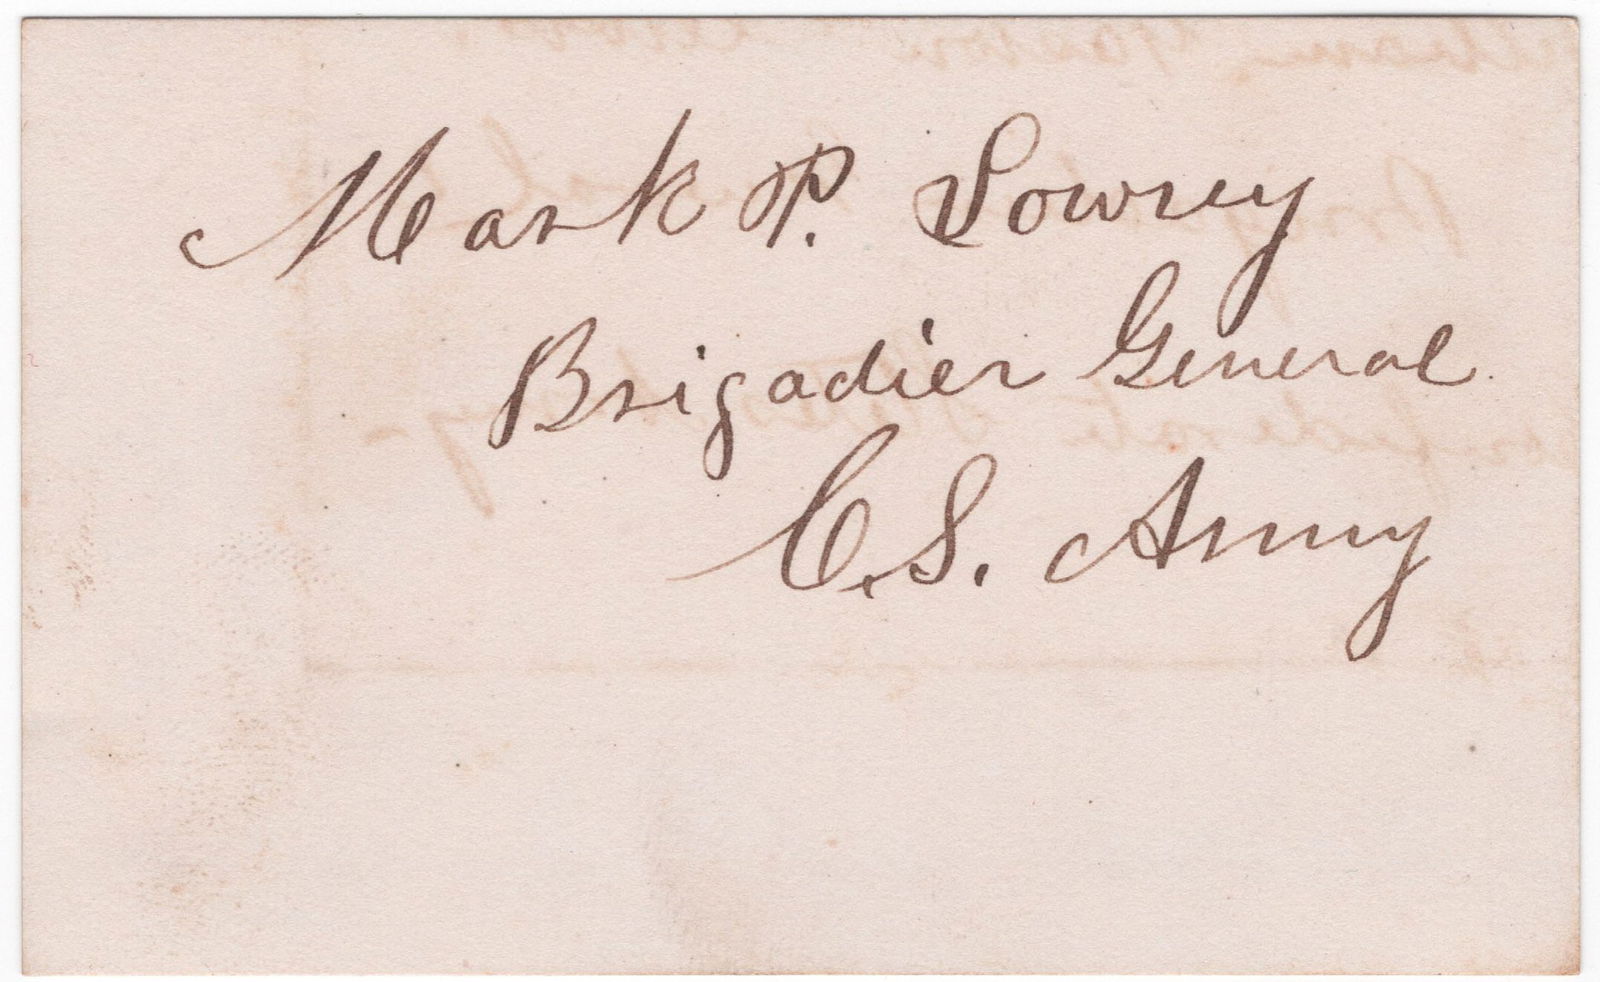 Mark P. Lowrey
Brigadier General
C.S. Army